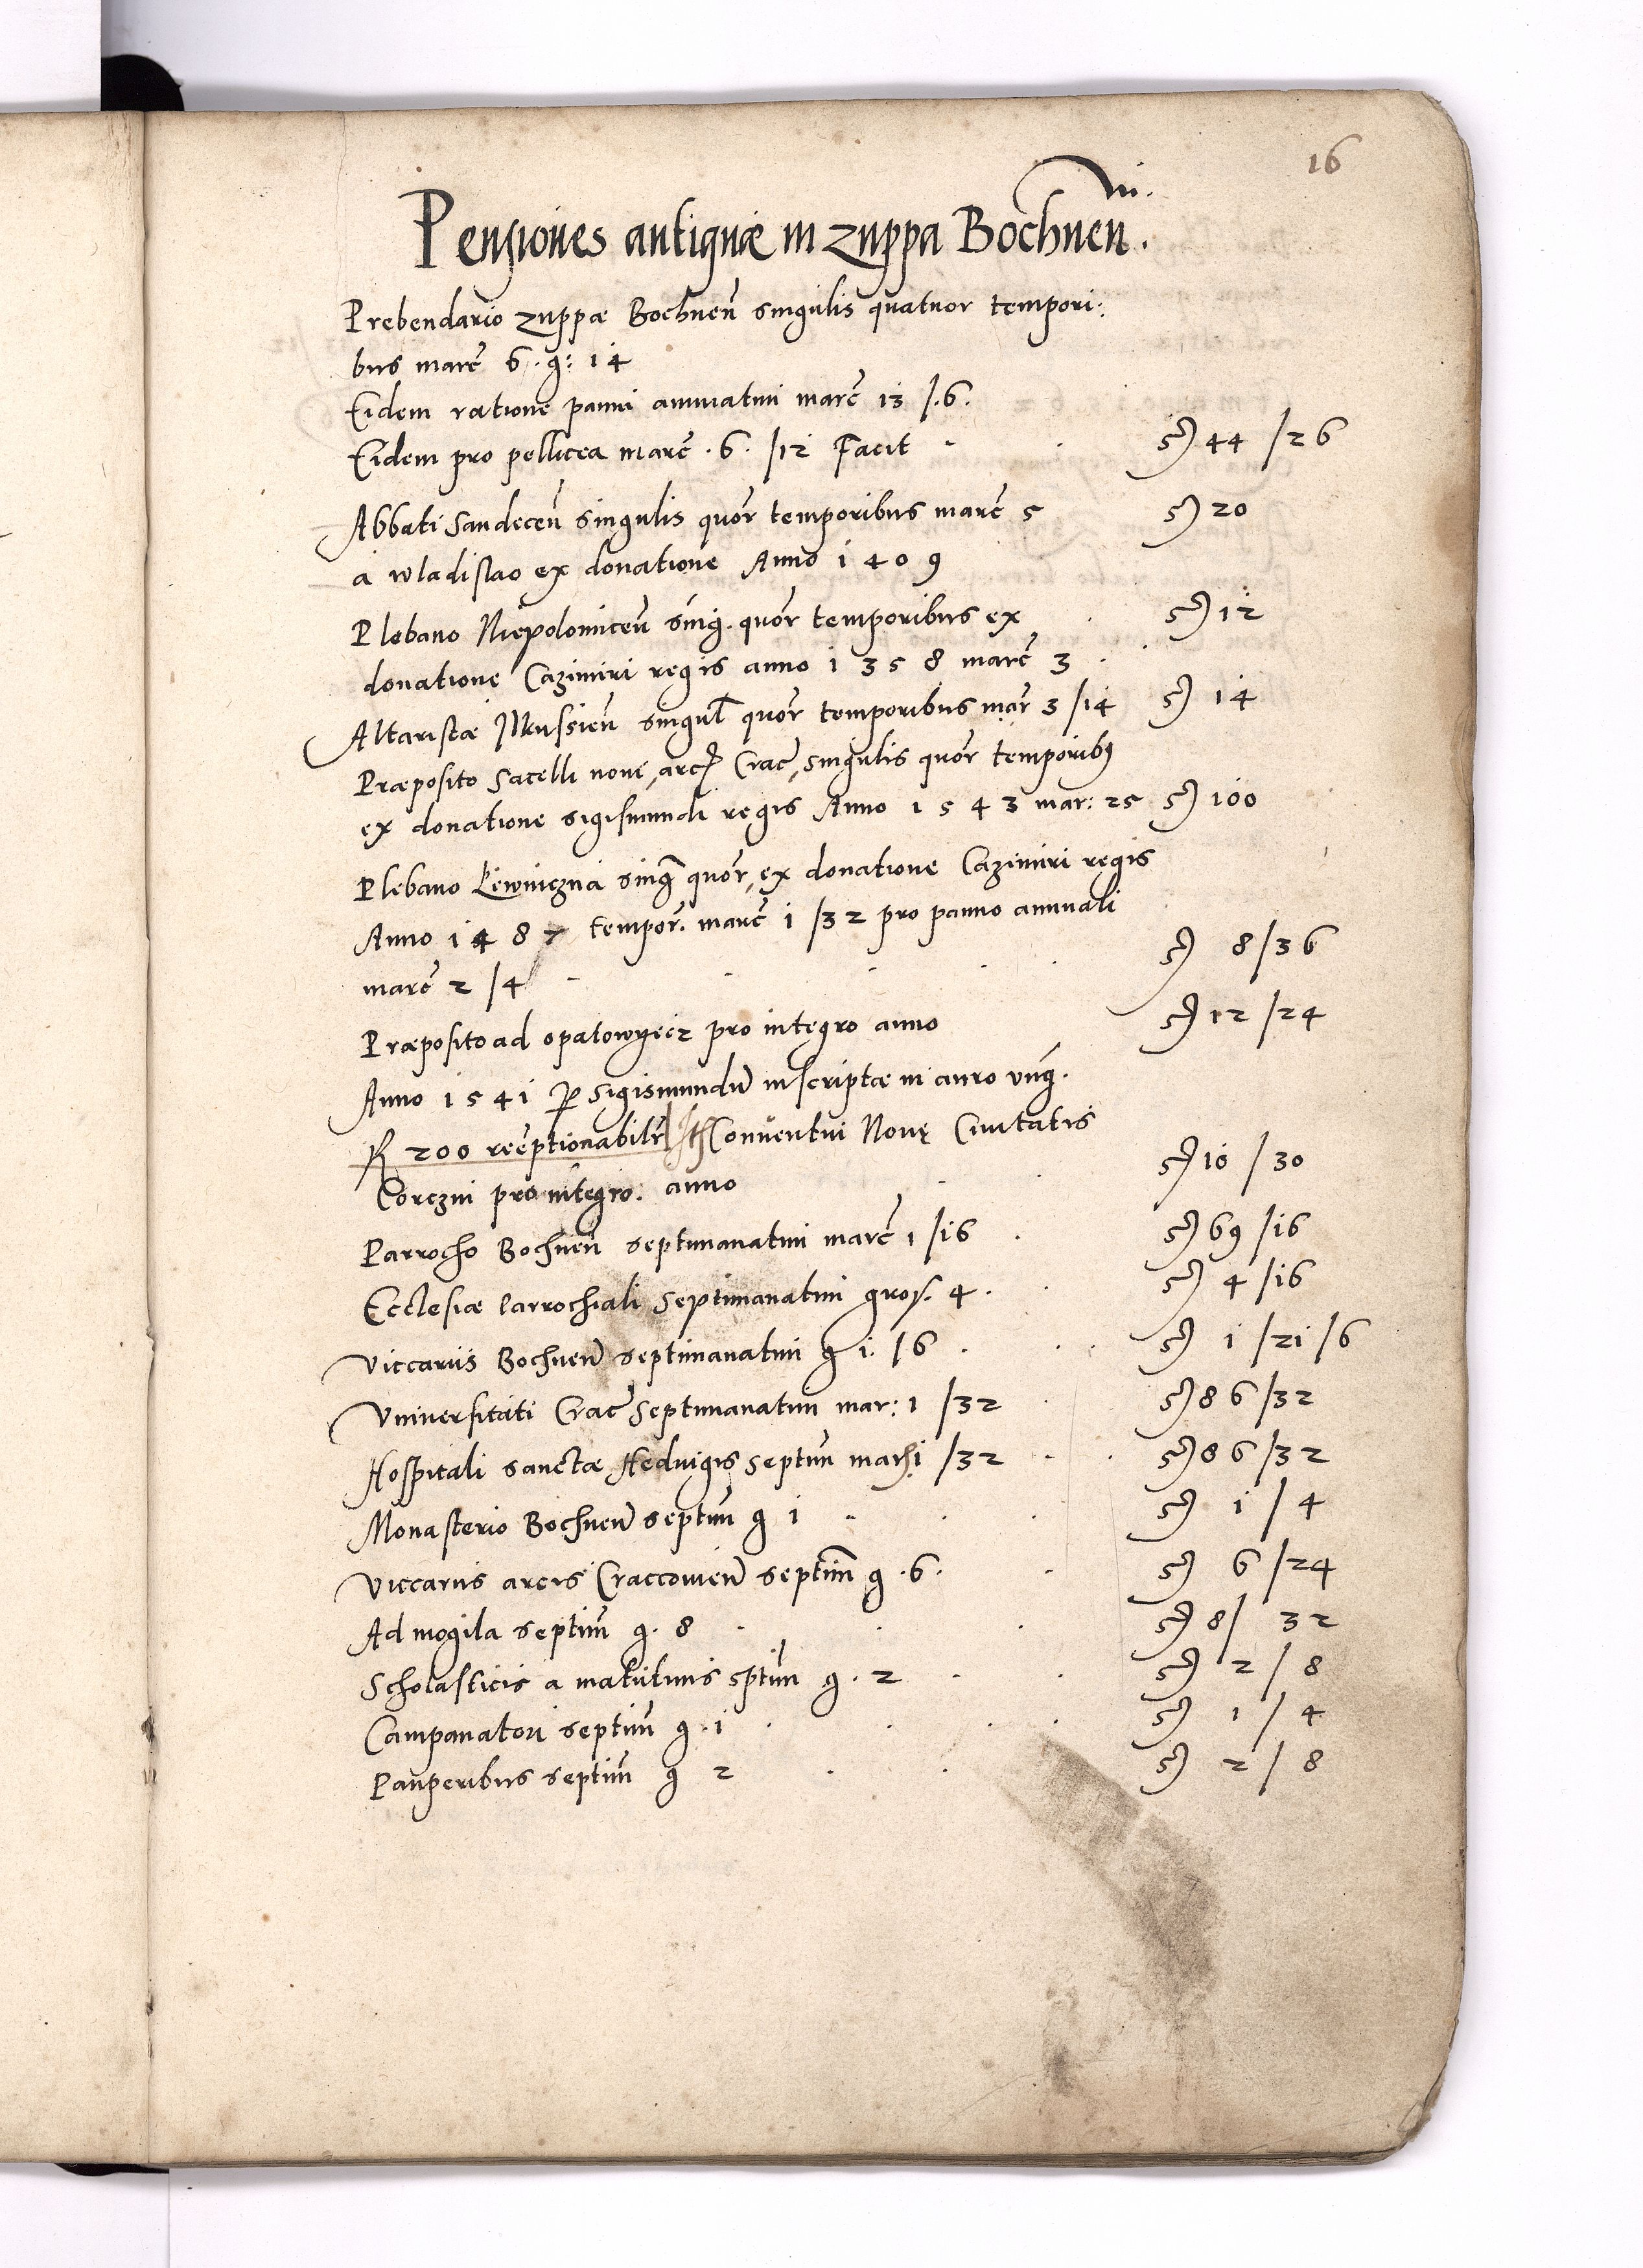 16
Pensiones antiquæ in zuppa Bochnen̄.
Prebendario zuppæ Bochnen̄ singulis quatuor tempori:
bus marc̄ 6. g: 14
Eidem ratione panni annuatim marc̄ 13 /.6.
Eidem pro pellicea marc̄ .6. /12 Facit 44 /26
Abbati Sandecen̄ singulis quor̄ temporibus marc̄ 5 20
a Wladislao ex donatione Anno 1409
Plebano Niepolomicen̄ sing. quor̄ temporibus ex 12
donatione Cazimiri regis anno 1358 marc̄ 3
Altaristæ Ilkussien̄ singul̄ quor̄ temporibus mar̄ 3 /14 14
Præposito Sacelli noui, arc, Crac̄, singulis quor̄ temporib9
ex donatione sigismundi regis Anno 1543 mar: 25 100
Plebano Lewniczna sinḡ quor̄, ex donatione Cazimiri regis
Anno 1487 tempor̄. marc̄ 1 /32 pro panno annuali
marc̄ 2 /4 8 /36
Præposito ad opatowyecz pro integro anno 12 /24
Anno 1541 P sigismundū inscriptæ in auro vnḡ.
R 200 reēptionabil Conventui Nouę Ciuitatis
Corczni pro integro. anno 10 /30
Parrocho Bochnen̄ septimanatim marc̄ 1 /16 69 /16
Ecclesiæ Parrochiali septimanatim gros. 4. 4 /16
Viccariis Bochnen̄ septimanatim g 1. /6 1 /21 /6
Vniversitati Crac̄ septimanatim mar: 1 /32 86 /32
Hospitali sanctæ Heduigis septim̄ mar 1 /32 86 /32
Monasterio Bochnen̄ septim̄ g 1 1 /4
Viccariis arcis Craccouien̄ septim̄ g .6. 6 /24
Ad mogila septim̄ g. 8 8/ 32
Scholasticis a matutinis sptim̄ g. 2 2 /8
Campanatori septim̄ g. 1 1 /4
Pauperibus septim̄ g 2 2 /8